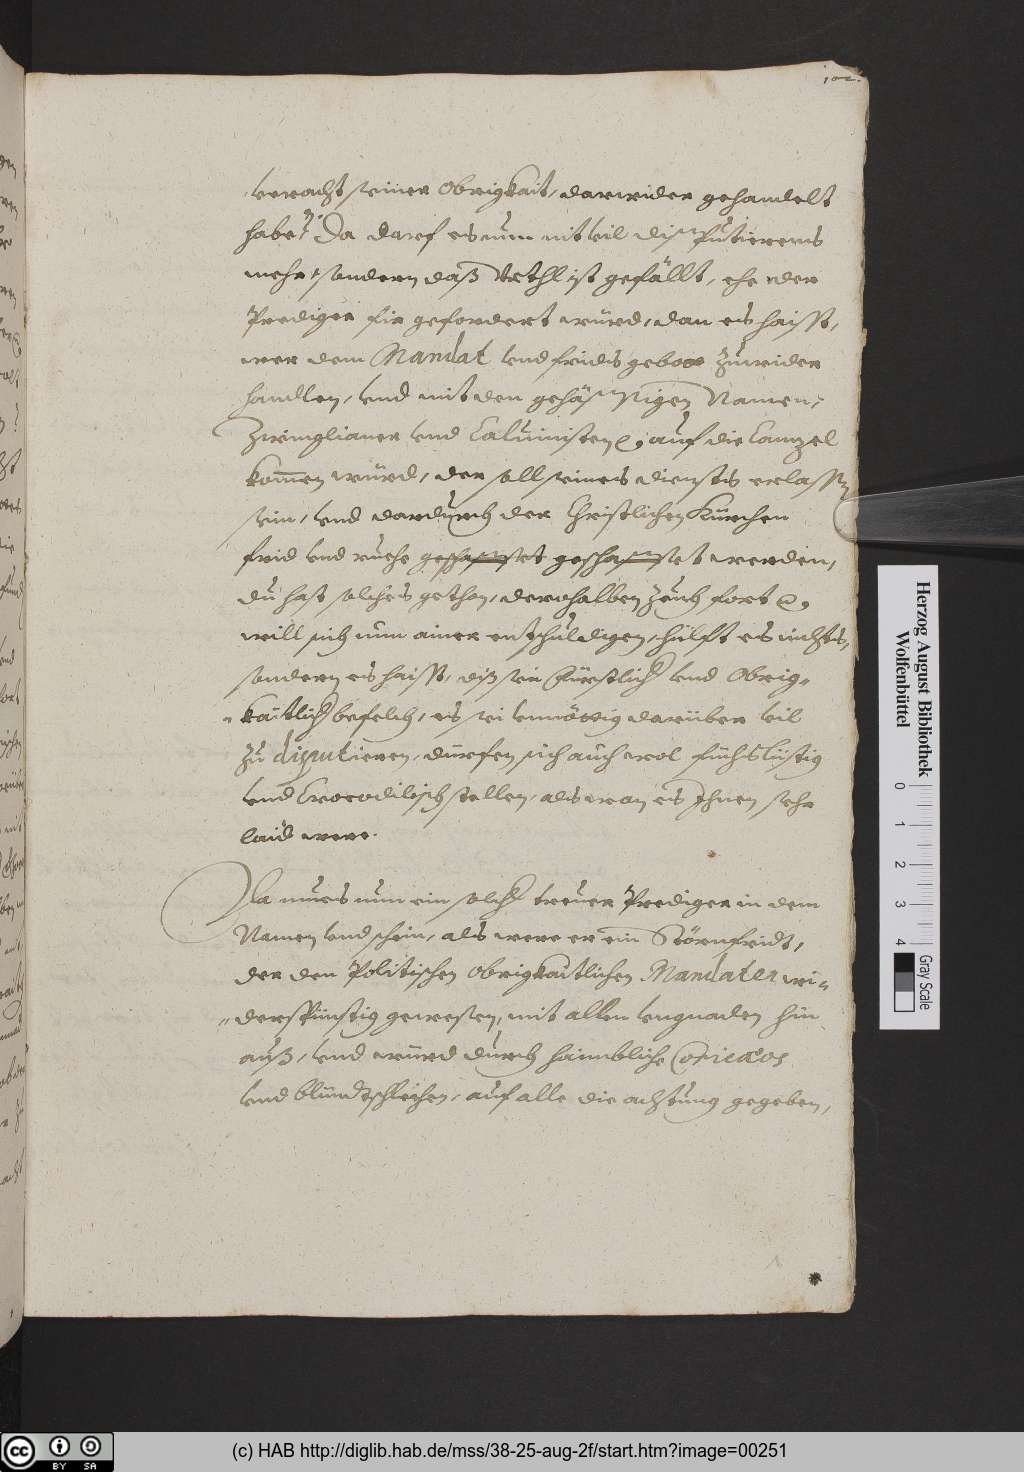 102.
veracht seiner Obrigkait, darwider gehandelt
habe? Da darf es nun nit vil disputierens
mehr, sondern daß Vrthl ist gefällt, ehe der
Prediger fir gefordert würd, dan es haist,
wer dem Mandat vnd fridis gebott zuwider
handlen, vnd mit den gehässigen Namen,
Zwinglianer vnd Caluinisten auf die Cantzel
kommen würd, der soll seines diensts erlassen
sein, vnd dardurch der Christlichen Kürchen
frid vnd ruehe geschaffet geschaffet werden,
du hast solches gethon, derohalben zeuch fort
will sich nun ainer entschuldigen, hülft es nichts,
sondern es haist, diß sei Fürstlich vnd Obrig-
kaitlich befelch, es sei vnnöttig darüber vil
zu disputieren, dürfen sich auch wol fuchslüstig
vnd Crocodilisch stellen, als wan es Ihnen sehr
laid were.
Da mues nun ein solch treuer Prediger in dem
Namen vnd schein, als were er ein Störnfridt,
der den Politischen Obrigkaitlichen Mandaten wi-
derspünstig gewesen, mit allen vngnaden hin
auß, vnd würd durch haimbliche
vnd blundtschleichen, auf alle die achtung gegeben,
Herzog August Bibliothek
Wolfenbüttel
0 1 2 3 4
Gray Scale
cc BY SA
(c) HAB http://diglib.hab.de/mss/38-25-aug-2f/start.htm?image=00251